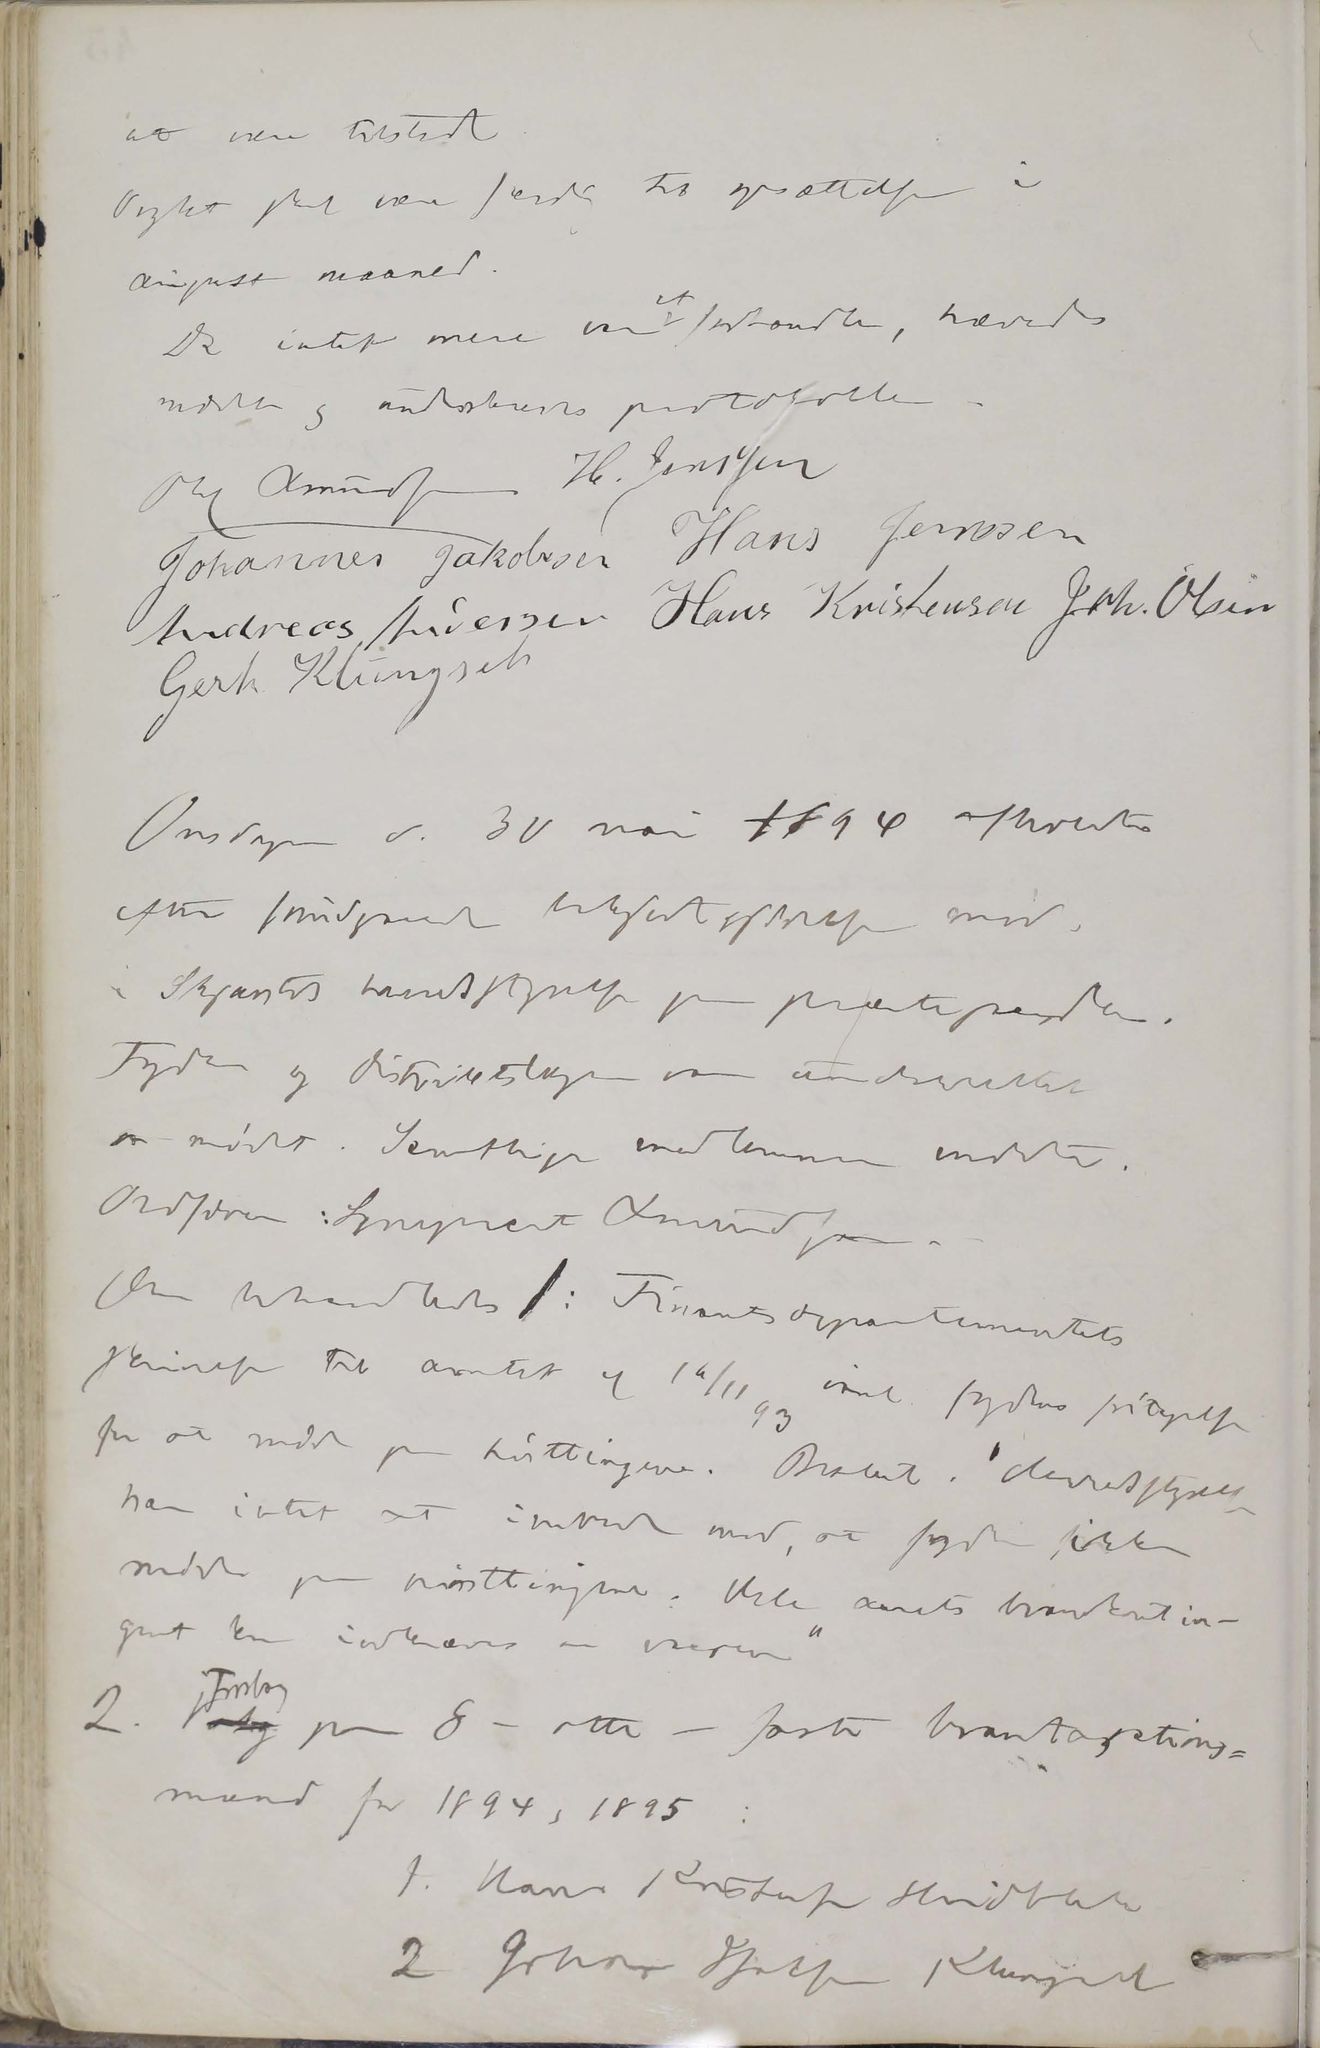 at være tilstede
skal være færdig til opsættelse i
august maaned.
Da intet mere var at forhandle, hævedes
mødet og underskreves protokollen.
Amundsen H. Jenssen
Johannes Jakobsen Hans Jenssen
Andreas Iversen Hans Kristensen Joh. Olsen
Gerh. Klungseth
Onsdagen d. 30 mai 1894 afholdtes
efter forudgaaende bekjentgjørelse møde
i Skjærstad herredsstyrelse paa præstegaarden.
Fogden og distriktslægen var underrettet
om mødet. Samtlige medlemmer mødte.
Ordfører: Sogneprest Amundsen.
Der behandledes 1: Finantsdepartementets
skrivelse til amtet af 16/11 93 fogdens fritagelse
for at møde paa høsttingene. Beslut. "Herredsstyrelsen
har intet at indvende mod, at fogden ikke
møder paa høsttingene. Hele aarets brandkontin-
gent kan indkræves om vaaren"
2. Forslag paa 8 - otte - faste brantaxations=
mænd for 1894, 1895:
1. Hans Kristensen
2 Johan Klungset